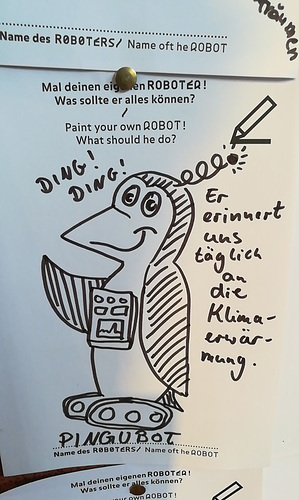 träumen
Name des ROBOTERS/ Name oft he ROBOT
Mal deinen eigenen ROBOTER!
Was sollte er alles können?
/
Paint your own ROBOT!
What should he do?
DING!
DING!
Er
erinnert
uns
täglich
an
die
Klima-
erwär-
mung.
PINGUBOT
Name des ROBOTERS/ Name oft he ROBOT
Mal deinen eigenen ROBOTER!
Was sollte er alles können?
your own ROBOT!